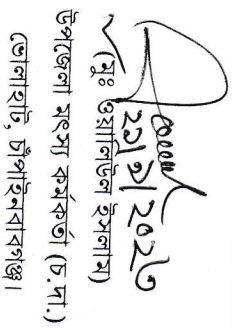 (মুঃ ওয়ালিউল ইসলাম)
উপজেলা মৎস্য কর্মকর্তা (চ.দা.)
ভোলাহাট, চাঁপাইনবাবগঞ্জ।